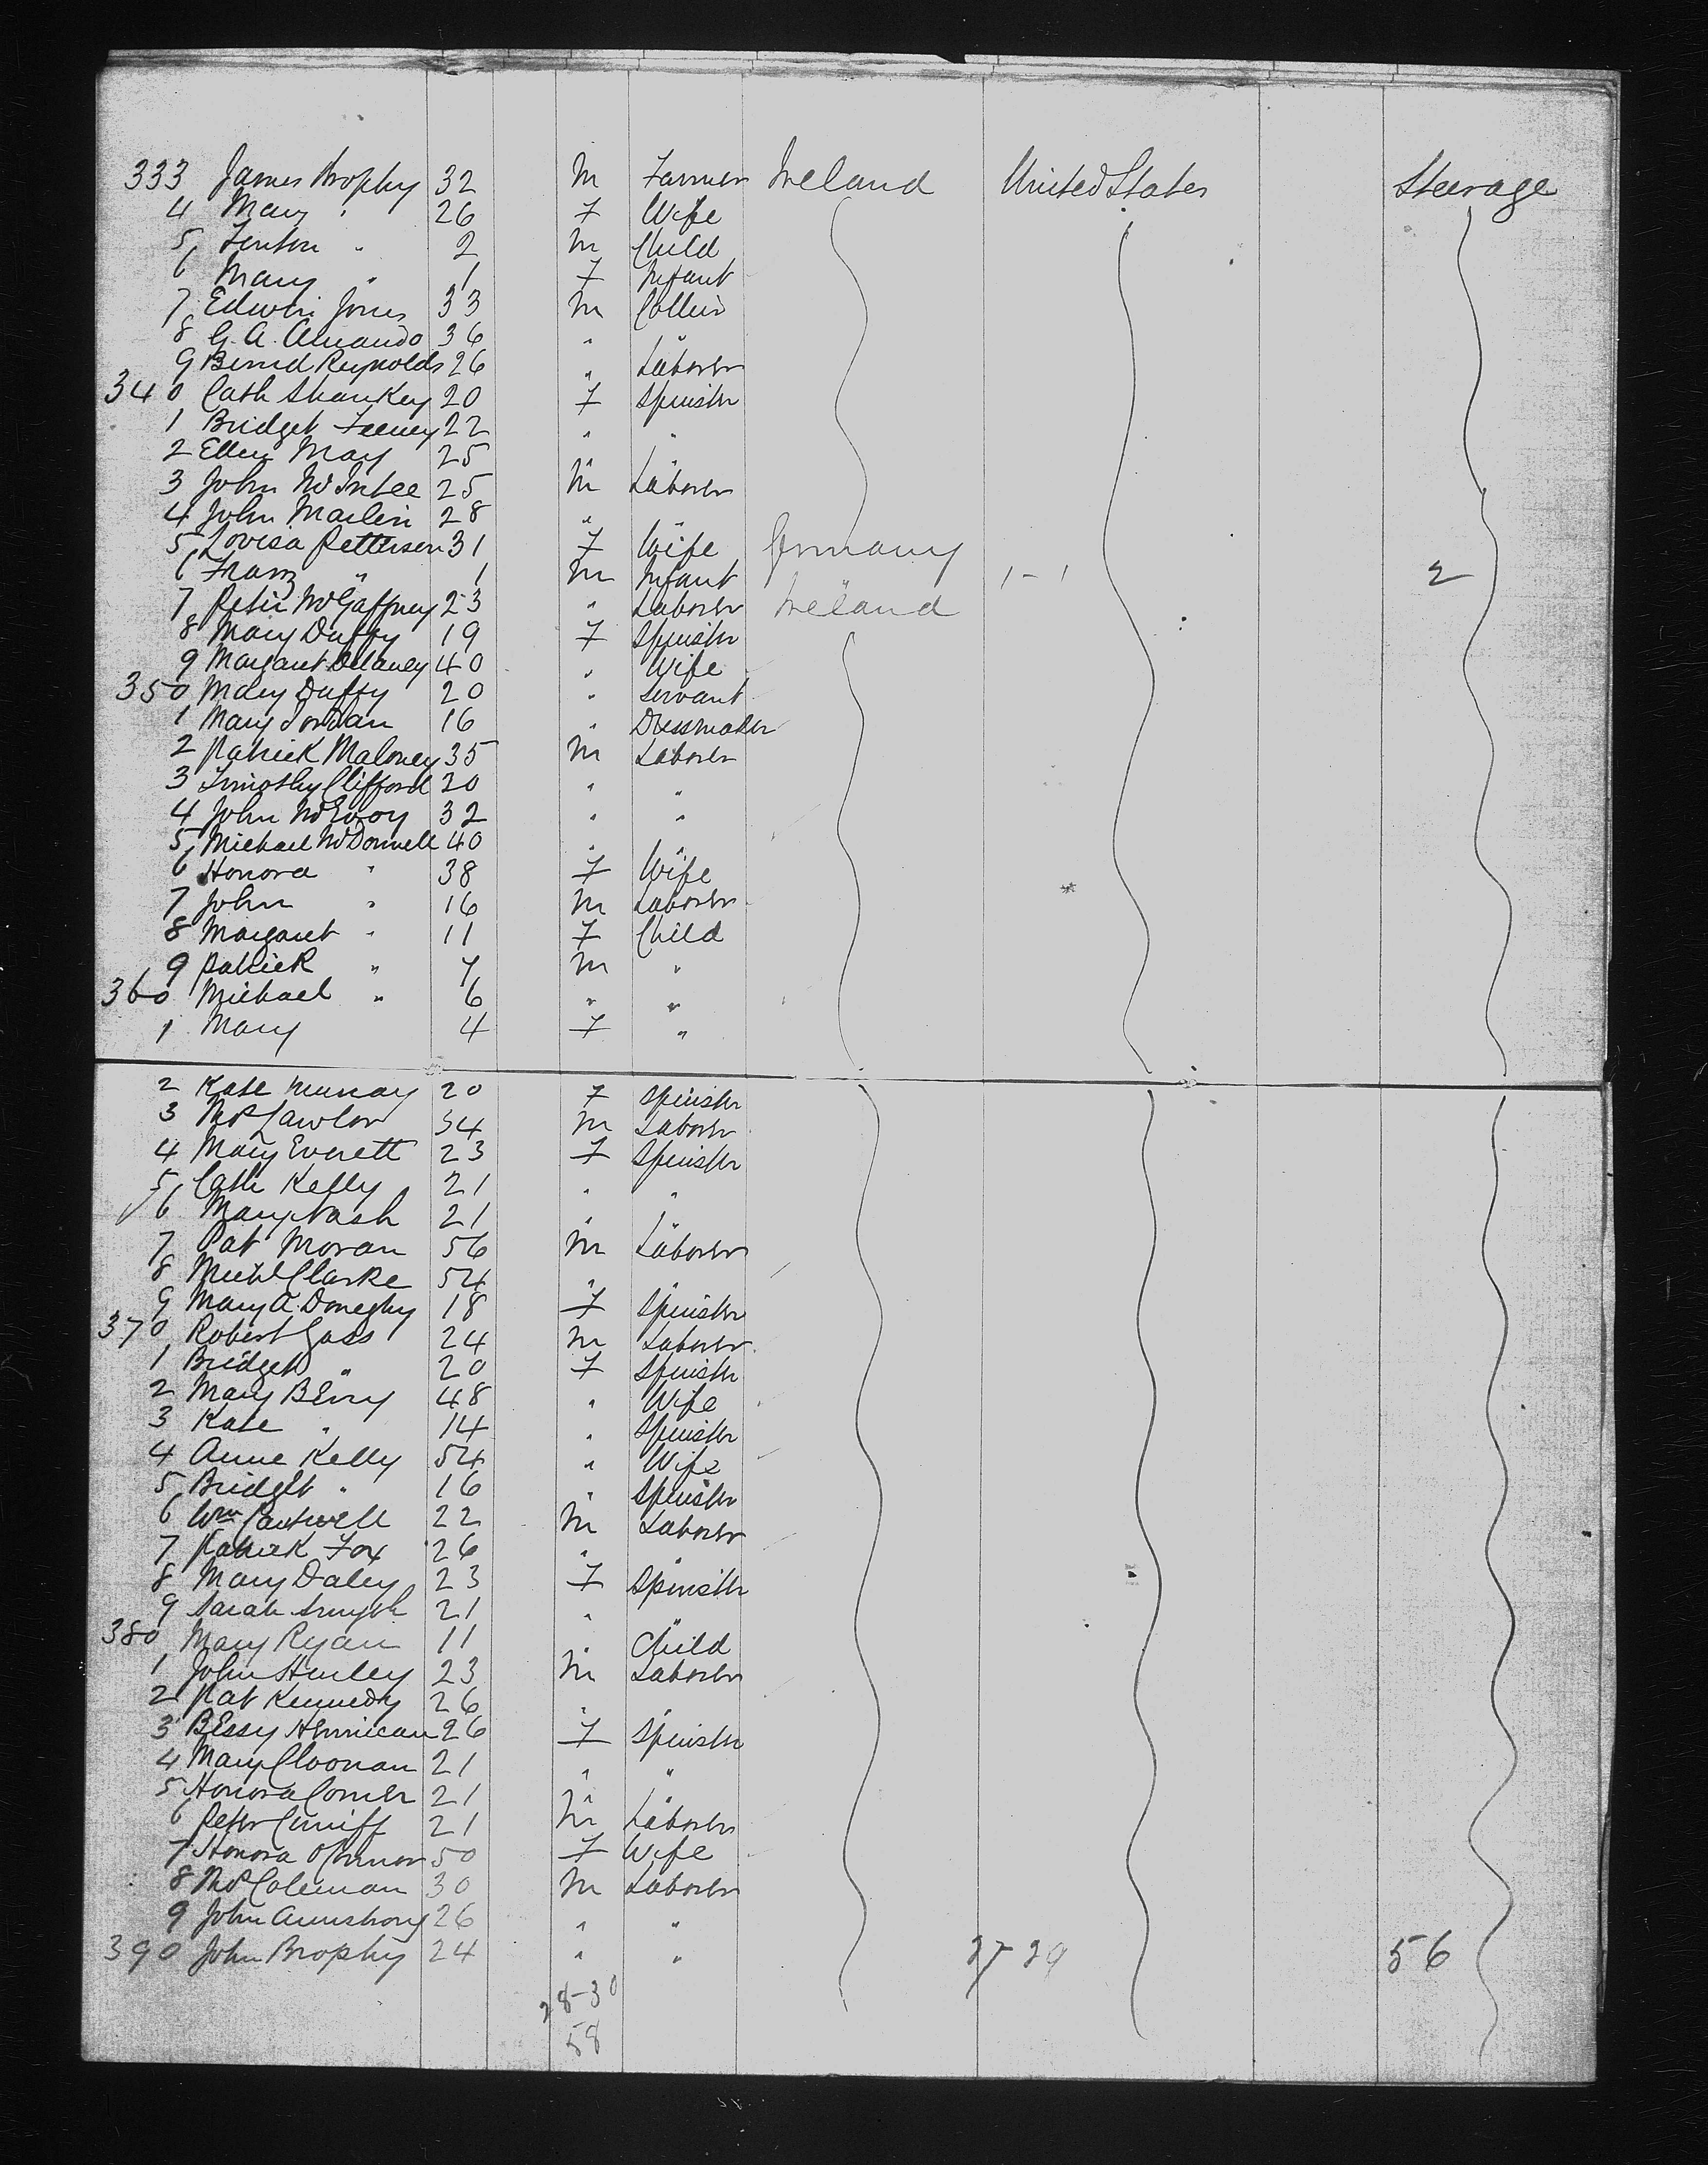 333 James Brophy 32 M Farmer Ireland United States Steerage
4 Mary " 26 F Wife
5 Fenton " 2 M Child
6 Mary " 1 F Infant
7 Edwin Jones 33 M Collier
8 G. A. 36 "
9 Bernd Reynolds 26 " Laborer
340 Cath Shankey 20 F Spinster
1 Bridget Feeney 22 " "
2 Ellen May 25 " "
3 John McIntee 25 M Laborer
4 John Martin 28 " "
5 Lovisa Petterson 31 F Wife Germany
6 Franz " 1 M Infant 1-1 2
7 Peter McGaffney 23 " Laborer Ireland
8 Mary Duffy 19 F Spinster
9 Margaret Delaney 40 " Wife
350 Mary Duffy 20 " Servant
1 Mary Jordan 16 " Dressmaker
2 Patrick Maloney 35 M Laborer
3 Timothy Clifford 20 " "
4 John McEvoy 32 " "
5 Michael McDonnell 40 " "
6 Honora " 38 F Wife
7 John " 16 M Laborer
8 Margaret " 11 F Child
9 Patrick " 7 M "
360 Michael " 6 " "
1 Mary 4 F "
2 Kate Murray 20 F Spinster
3 Thos Lawlor 34 M Laborer
4 Mary Everett 23 F Spinster
5 Cath Kelly 21 " "
6 Mary Nash 21 " "
7 Pat Moran 56 M Laborer
8 Michl Clarke 54 " "
9 Mary A. Doneghy 18 F Spinster
370 Robert Gass 24 M Laborer
1 Bridget " 20 F Spinster
2 Mary Berry 48 " Wife
3 Kate " 14 " Spinster
4 Anne Kelly 54 " Wife
5 Bridget " 16 " Spinster
6 Wm Cantwell 22 M Laborer
7 Patrick Fox 26 " "
8 Mary Daley 23 F Spinster
9 Sarah Smyth 21 " "
380 Mary Ryan 11 " Child
1 John Hurley 23 M Laborer
2 Pat Kennedy 26 " "
3 Bessy Hennican 26 F Spinster
4 Mary Cloonan 21 " "
5 Honora Comer 21 " "
6 Peter Cunniff 21 M Laborer
7 Honora OConnor 50 F Wife
8 Thos Coleman 30 M Laborer
9 John Armstrong 26 " "
390 John Brophy 24 " " 27 29 56
28-30
58